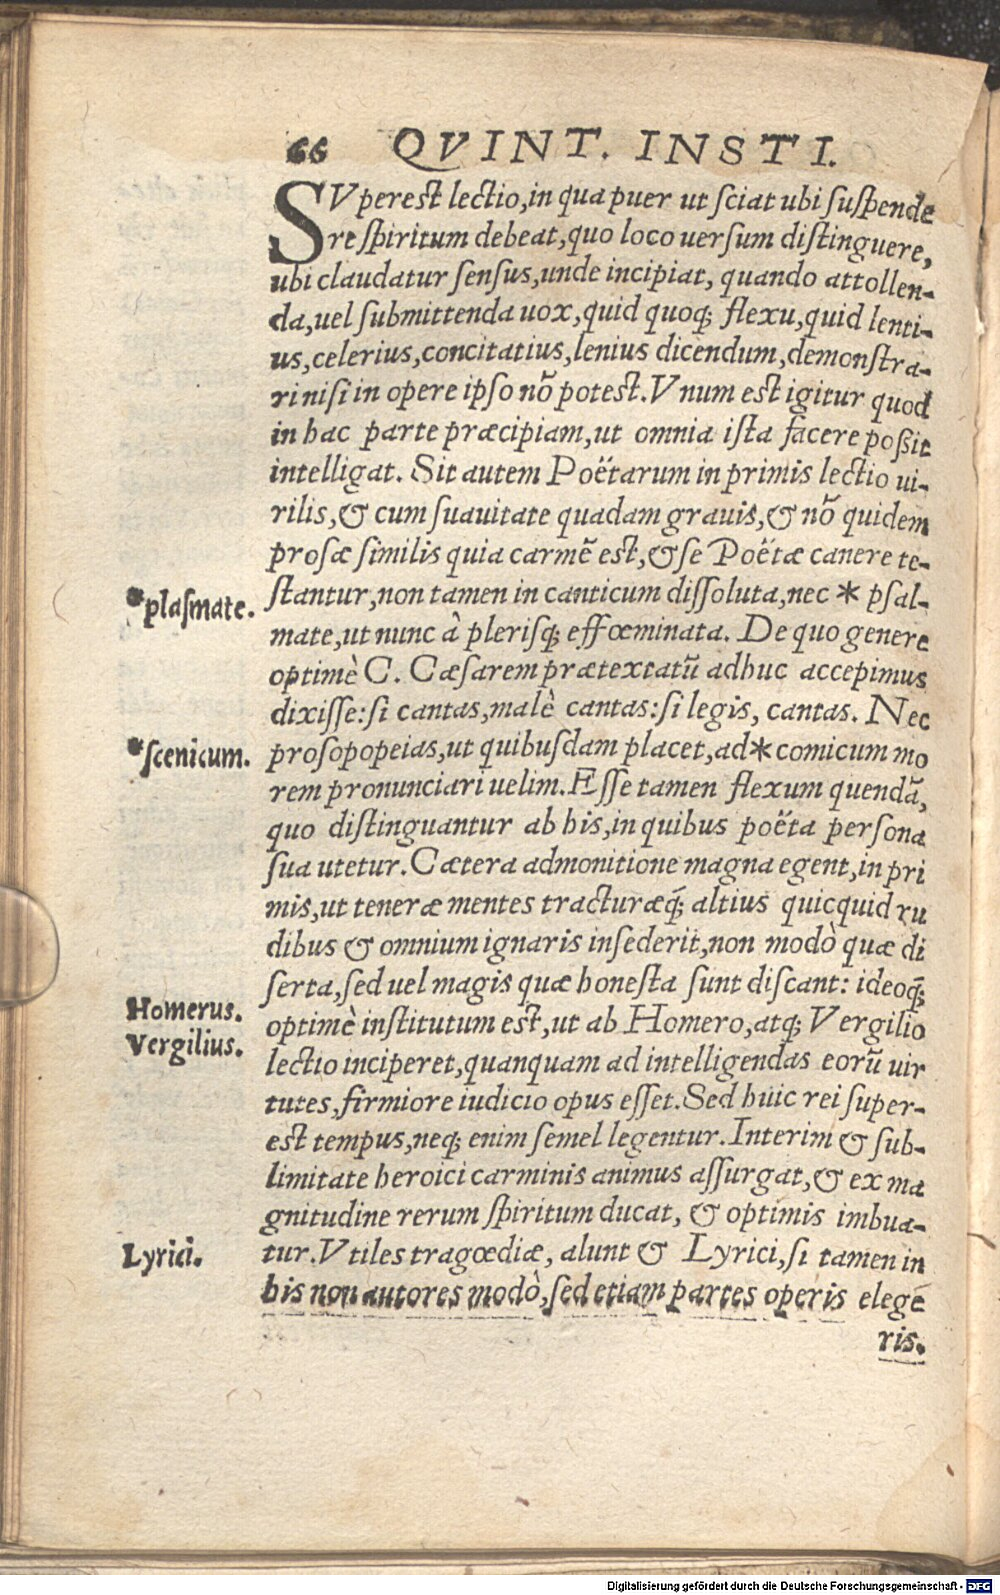 66 QVINT. INSTI.
SVperest lectio, in qua puer ut sciat ubi suspende
re spiritum debeat, quo loco uersum distinguere,
ubi claudatur sensus, unde incipiat, quando attollen-
da, uel submittenda uox, quid quoq; flexu, quid lenti-
us, celerius, concitatius, lenius dicendum, demonstra-
ri nisi in opere ipso nõ potest. Vnum est igitur quod
in hac parte præcipiam, ut omnia ista facere possit
intelligat. Sit autem Poëtarum in primis lectio ui-
rilis, & cum suauitate quadam grauis, & nõ quidem
prosæ similis quia carmẽ est, & se Poëtæ canere te-
*plasmate. stantur, non tamen in canticum dissoluta, nec * psal-
mate, ut nunc à plerisq; effœminata. De quo genere
optimè C. Cæsarem prætextatũ adhuc accepimus
dixisse: si cantas, malè cantas: si legis, cantas. Nec
*scenicum. prosopopeias, ut quibusdam placet, ad * comicum mo
rem pronunciari uelim. Esse tamen flexum quendã,
quo distinguantur ab his, in quibus poëta persona
sua utetur. Cætera admonitione magna egent, in pri
mis, ut teneræ mentes tracturæq; altius quicquid ru
dibus & omnium ignaris insederit, non modò quæ di
serta, sed uel magis quæ honesta sunt discant: ideoq;
Homerus. optimè institutum est, ut ab Homero, atq; Vergilio
Vergilius. lectio inciperet, quanquam ad intelligendas eorũ uir
tutes, firmiore iudicio opus esset. Sed huic rei super-
est tempus, neq; enim semel legentur. Interim & sub-
limitate heroici carminis animus assurgat, & ex ma
gnitudine rerum spiritum ducat, & optimis imbua-
Lyrici. tur. Vtiles tragœdiæ, alunt & Lyrici, si tamen in
his non autores modò, sed etiam partes operis elege
ris.
Digitalisierung gefördert durch die Deutsche Forschungsgemeinschaft - DFG